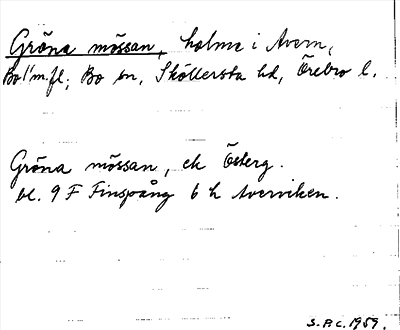 Gröna mössan, holme i Avern,
Bo l:m.fl., Bo sn, Sköllersta hd, Örebro l.
Gröna mössan, ek Österg.
bl. 9 F Finspång 6 h Averviken.
S.P.C. 1959.